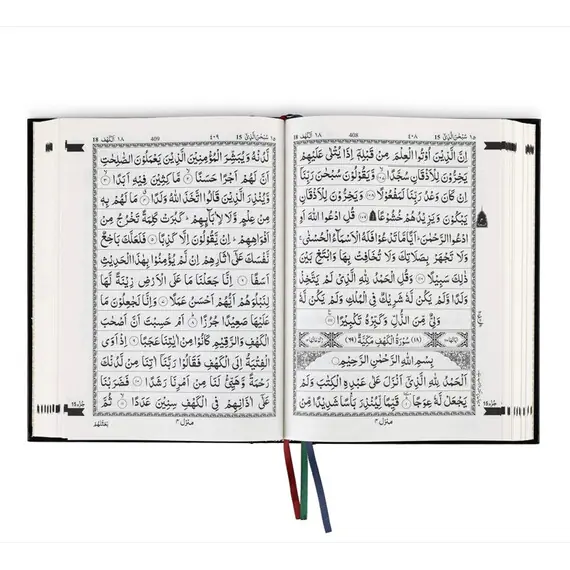 سُبْحٰنَ الَّذِیْ 15 ٤٠٨ 408 اَلْكَهْف ١٨ 18
اِنَّ الَّذِیْنَ اُوْتُوا الْعِلْمَ مِنْ قَبْلِهٖۤ اِذَا یُتْلٰی عَلَیْهِمْ
یَخِرُّوْنَ لِلْاَذْقَانِ سُجَّدًا ۙ وَّیَقُوْلُوْنَ سُبْحٰنَ رَبِّنَاۤ
اِنْ كَانَ وَعْدُ رَبِّنَا لَمَفْعُوْلًا وَیَخِرُّوْنَ لِلْاَذْقَانِ
یَبْكُوْنَ وَیَزِیْدُهُمْ خُشُوْعًا ۩ قُلِ ادْعُوا اللّٰهَ اَوِ
ادْعُوا الرَّحْمٰنَ ؕ اَیًّا مَّا تَدْعُوْا فَلَهُ الْاَسْمَآءُ الْحُسْنٰی ۚ
وَلَا تَجْهَرْ بِصَلَاتِكَ وَلَا تُخَافِتْ بِهَا وَابْتَغِ بَیْنَ
ذٰلِكَ سَبِیْلًا وَقُلِ الْحَمْدُ لِلّٰهِ الَّذِیْ لَمْ یَتَّخِذْ
وَلَدًا وَّلَمْ یَكُنْ لَّهٗ شَرِیْكٌ فِی الْمُلْكِ وَلَمْ یَكُنْ لَّهٗ
وَلِیٌّ مِّنَ الذُّلِّ وَكَبِّرْهُ تَكْبِیْرًا
(١٨) سُوْرَةُ الْكَهْفِ مَكِّیَّةٌ (٦٩)
بِسْمِ اللّٰهِ الرَّحْمٰنِ الرَّحِیْمِ
اَلْحَمْدُ لِلّٰهِ الَّذِیْۤ اَنْزَلَ عَلٰی عَبْدِهِ الْكِتٰبَ وَلَمْ
یَجْعَلْ لَّهٗ عِوَجًا قَیِّمًا لِّیُنْذِرَ بَاْسًا شَدِیْدًا مِّنْ
منزل ٤
سُبْحٰنَ الَّذِیْ 15 ٤٠٩ 409 اَلْكَهْف ١٨ 18
لَّدُنْهُ وَیُبَشِّرَ الْمُؤْمِنِیْنَ الَّذِیْنَ یَعْمَلُوْنَ الصّٰلِحٰتِ
اَنَّ لَهُمْ اَجْرًا حَسَنًا مَّاكِثِیْنَ فِیْهِ اَبَدًا
وَّیُنْذِرَ الَّذِیْنَ قَالُوا اتَّخَذَ اللّٰهُ وَلَدًا مَا لَهُمْ بِهٖ
مِنْ عِلْمٍ وَّلَا لِاٰبَآئِهِمْ ؕ كَبُرَتْ كَلِمَةً تَخْرُجُ مِنْ
اَفْوَاهِهِمْ ؕ اِنْ یَّقُوْلُوْنَ اِلَّا كَذِبًا فَلَعَلَّكَ بَاخِعٌ
نَّفْسَكَ عَلٰۤی اٰثَارِهِمْ اِنْ لَّمْ یُؤْمِنُوْا بِهٰذَا الْحَدِیْثِ
اَسَفًا اِنَّا جَعَلْنَا مَا عَلَی الْاَرْضِ زِیْنَةً لَّهَا
لِنَبْلُوَهُمْ اَیُّهُمْ اَحْسَنُ عَمَلًا وَاِنَّا لَجٰعِلُوْنَ مَا
عَلَیْهَا صَعِیْدًا جُرُزًا اَمْ حَسِبْتَ اَنَّ اَصْحٰبَ
الْكَهْفِ وَالرَّقِیْمِ كَانُوْا مِنْ اٰیٰتِنَا عَجَبًا اِذْ اَوَی
الْفِتْیَةُ اِلَی الْكَهْفِ فَقَالُوْا رَبَّنَاۤ اٰتِنَا مِنْ لَّدُنْكَ
رَحْمَةً وَّهَیِّئْ لَنَا مِنْ اَمْرِنَا رَشَدًا فَضَرَبْنَا
عَلٰۤی اٰذَانِهِمْ فِی الْكَهْفِ سِنِیْنَ عَدَدًا ثُمَّ
منزل ٤
بَعَثْنٰهُمْ